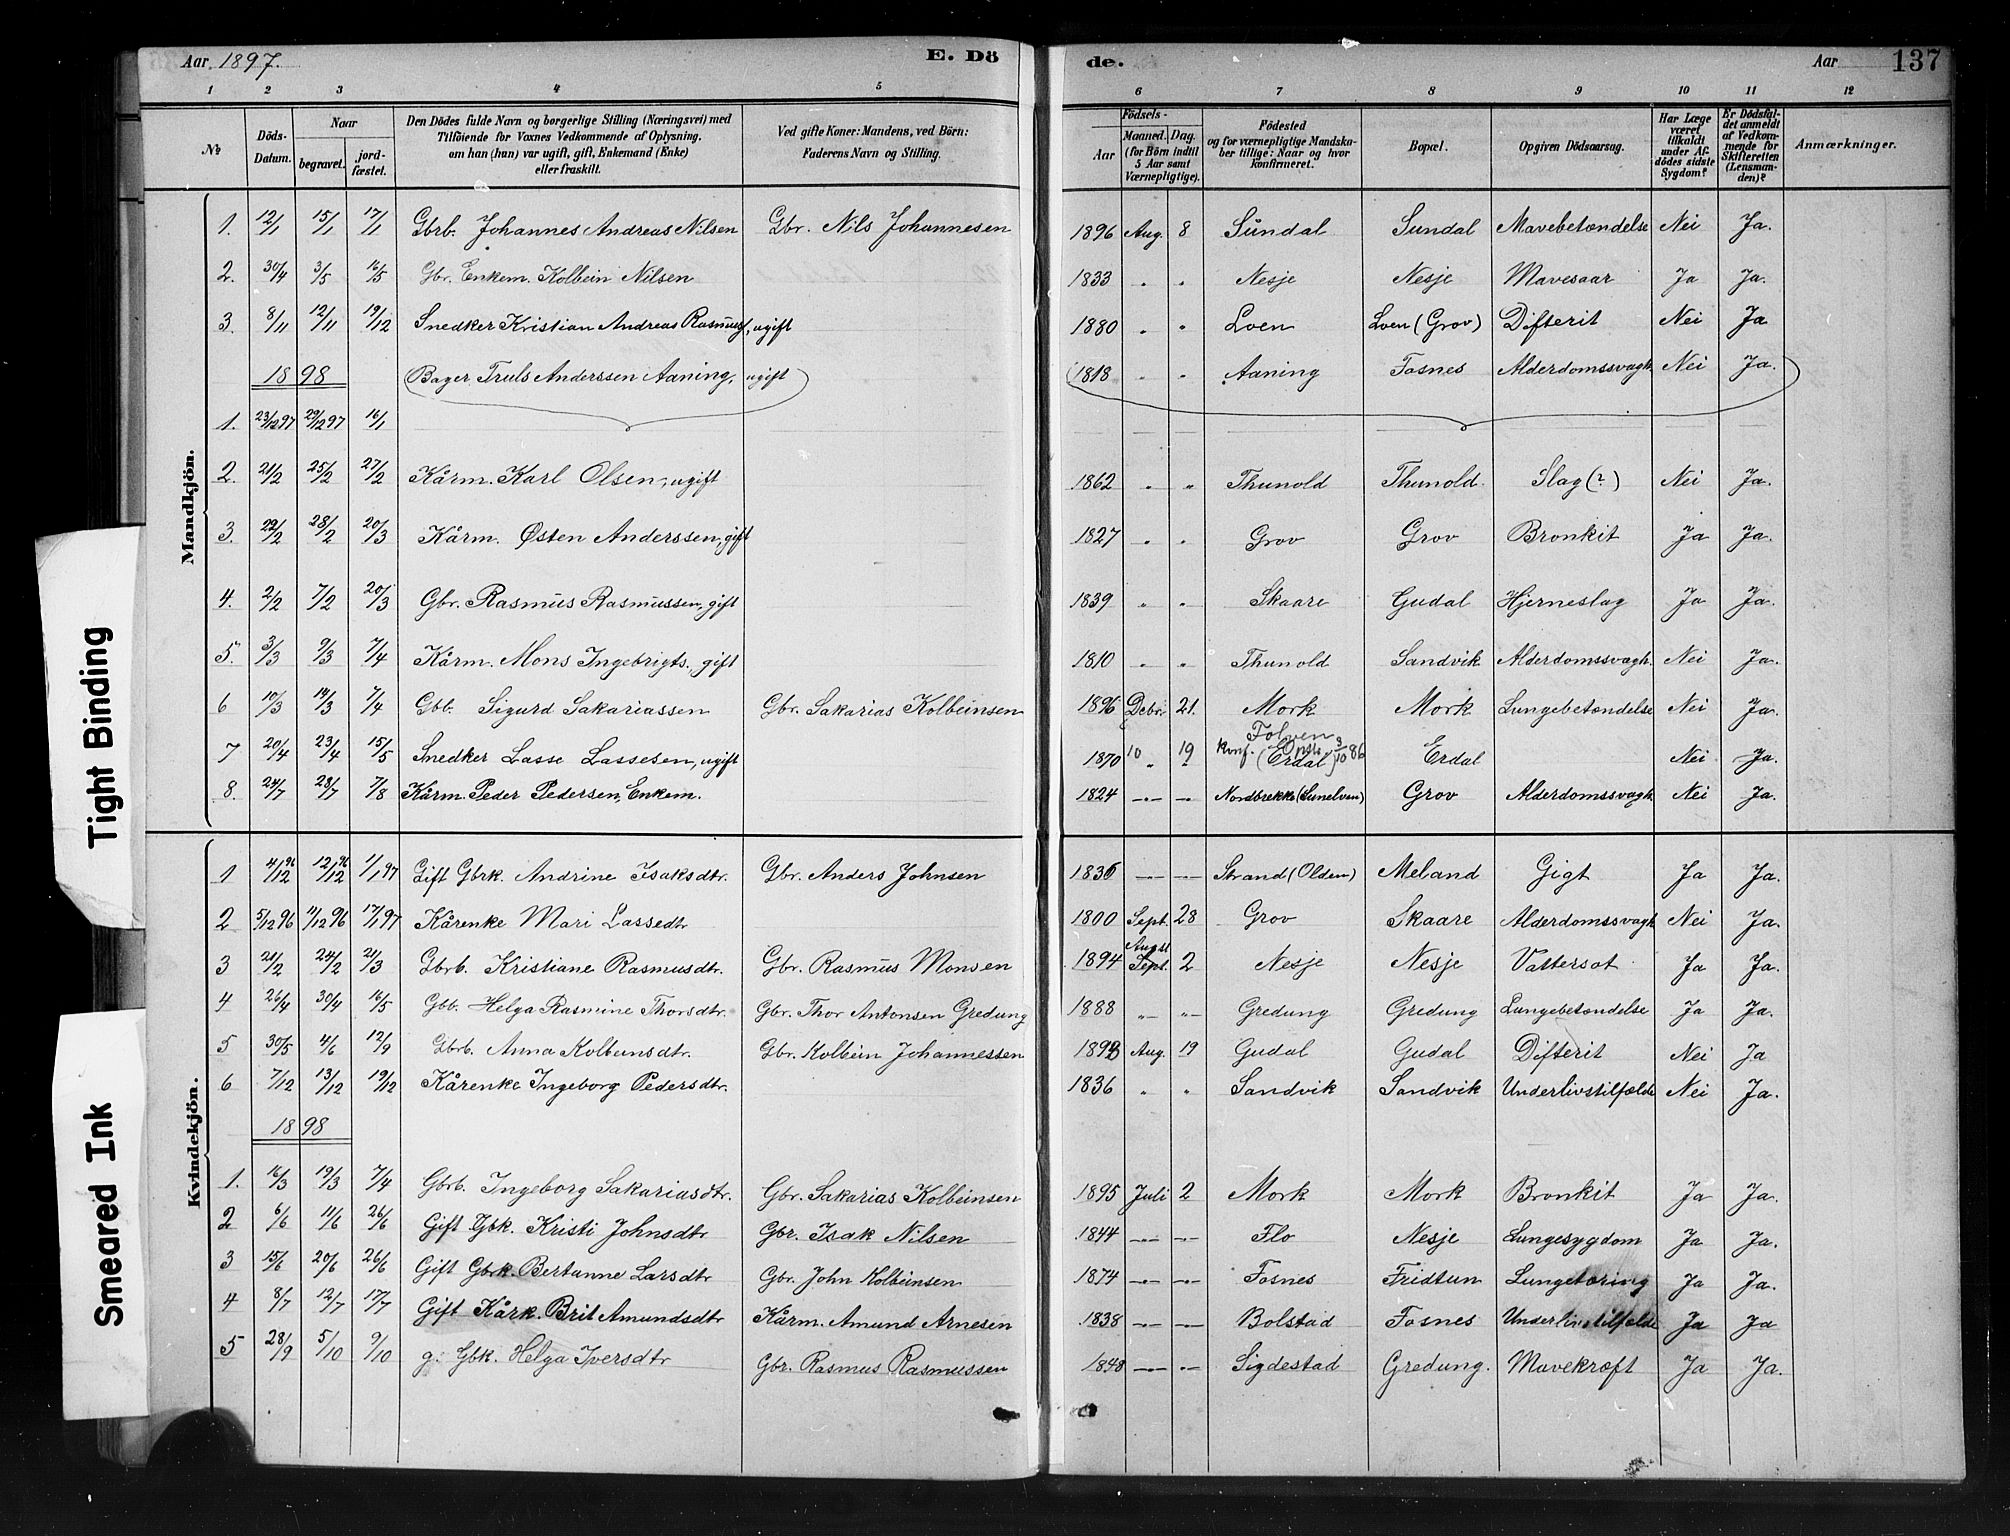 Aar 1897. E. Dö de. Aar 137
1 2 3 4 5 6 7 8 9 10 11 12
№ Döds-Datum. Naar begravet. jordfæstet. Den Dödes fulde Navn og borgerlige Stilling (Næringsvei) med Tilföiende for Voxnes Vedkommende af Oplysning. om han (hun) var ugift, gift, Enkemand (Enke) eller fraskilt. Ved gifte Koner: Mandens, ved Börn: Faderens Navn og Stilling. Födsels- Aar Maaned. Dag. (for Börn indtil 5 Aar samt Værnepligtige). Födested og for værnepligtige Mandskaber tillige: Naar og hvor konfirmeret. Bopæl. Opgiven Dödsaarsag. Har Læge været tilkaldt under Afdödes sidste Sygdom? Er Dödsfaldet anmeldt af Vedkommende for Skifteretten (Lensmanden)? Anmærkninger.
Mandkjön.
1. 12/1 15/1 17/1 Gbrb. Johannes Andreas Nilsen Gbr. Nils Johannesen 1896 Aug. 8 Sundal Sundal Mavebetændelse Nei Ja.
2. 30/4 3/5 16/5 Gbr. Enkem. Kolbein Nilsen 1833 " " Nesje Nesje Mavesaar Ja Ja.
3. 8/11 12/11 19/12 Snedker Kristian Andreas Rasmus, ugift 1880 " " Loen Loen (Grov) Difterit Nei Ja
1898 (Bager Truls Anderssen Aaning, ugift) (1818 " " Aaning Fosnes Alderdomssvagh. Nei Ja.)
1. 23/12 97 29/12 97 16/1
2. 21/2 25/2 27/2 Kårm. Karl Olsen, ugift 1862 " " Thunold Thunold. Slag (?) Nei Ja.
3. 22/2 28/2 20/3 Kårm. Østen Anderssen, gift 1827 " " Grov Grov Bronkit Ja Ja.
4. 2/2 7/2 20/3 Gbr. Rasmus Rasmussen, gift 1839 " " Skaare Gudal Hjerneslag Ja Ja.
5. 3/3 9/3 7/4 Kårm. Mons Ingebrigts., gift 1810 " " Thunold Sandvik Alderdomssvagh. Nei Ja.
6 10/3 14/3 7/4 Gbb. Sigurd Sakariassen Gbr. Sakarias Kolbeinsen 1896 Debr. 21. Mork Mork Lungebetændelse Nei Ja.
7 20/4 23/4 15/5 Snedker Lasse Lassesen, ugift 1870 10 19 Folven Konf. (Erdal) 3/10 86 Erdal Nei Ja.
8. 24/7 28/7 7/8 Kårm. Peder Pedersen, Enkem. 1824 -"- -"- Nordbrekke (Sunelven) Grov Alderdomssvagh. Nei Ja.
Kvindekjön.
1 4/12 96 12/12 96 1/1 97 Gift Gbrk. Andrine Isaksdtr. Gbr. Anders Johnsen 1836 -"- -"- Strand (Olden) Meland Gigt Ja Ja.
2 5/12 96 11/12 96 17/1 97 Kårenke Mari Lassedtr 1800 Sept. 28 Grov Skaare Alderdomssvagh Nei Ja.
3 21/2 24/2 21/3 Gbrb. Kristiane Rasmusdtr. Gbr. Rasmus Monsen 1894 Augst Sept. 2 Nesje Nesje Vattersot Ja Ja.
4 26/4 30/4 16/5 Gbb. Helga Rasmine Thorsdtr. Gbr. Thor Antonsen Gredung 1888 -"- -"- Gredung Gredung Lungebetændelse Ja Ja.
5 30/5 4/6 12/9 Gbrb. Anna Kolbeinsdtr. Gbr. Kolbein Johannessen 1893 Aug. 19 Gudal Gudal Difterit Nei Ja
6 7/12 13/12 19/12 Kårenke Ingeborg Pedersdtr. 1836 " " Sandvik Sandvik Underlivstilfælde Nei Ja.
1898
1. 16/3 19/3 7/4 Gbrb. Ingeborg Sakariasdtr. Gbr. Sakarias Kolbeinsen 1895 Juli 2 Mork Mork Bronkit Ja Ja.
2 6/6 11/6 26/6 Gift Gbk. Kristi Johnsdtr Gbr. Isak Nilsen 1844 -"- -"- Flo Nesje Lungesygdom Ja Ja.
3 15/6 20/6 26/6 Gift Gbrk. Bertanne Larsdtr Gbr. John Kolbeinsen 1874 -"- -"- Fosnes Fridtun Lungetæring Ja Ja.
4 8/7 12/7 17/7 Gift Kårk. Brit Amundsdtr Kårm. Amund Arnesen 1838 -"- -"- Bolstad Fosnes Underlivstilfælde Ja Ja
5 28/9 5/10 9/10 g. Gbk. Helga Iversdtr Gbr. Rasmus Rasmussen 1848 -"- -"- Sigdestad Gredung. Mavekræft Ja Ja.
Tight Binding
Smeared Ink